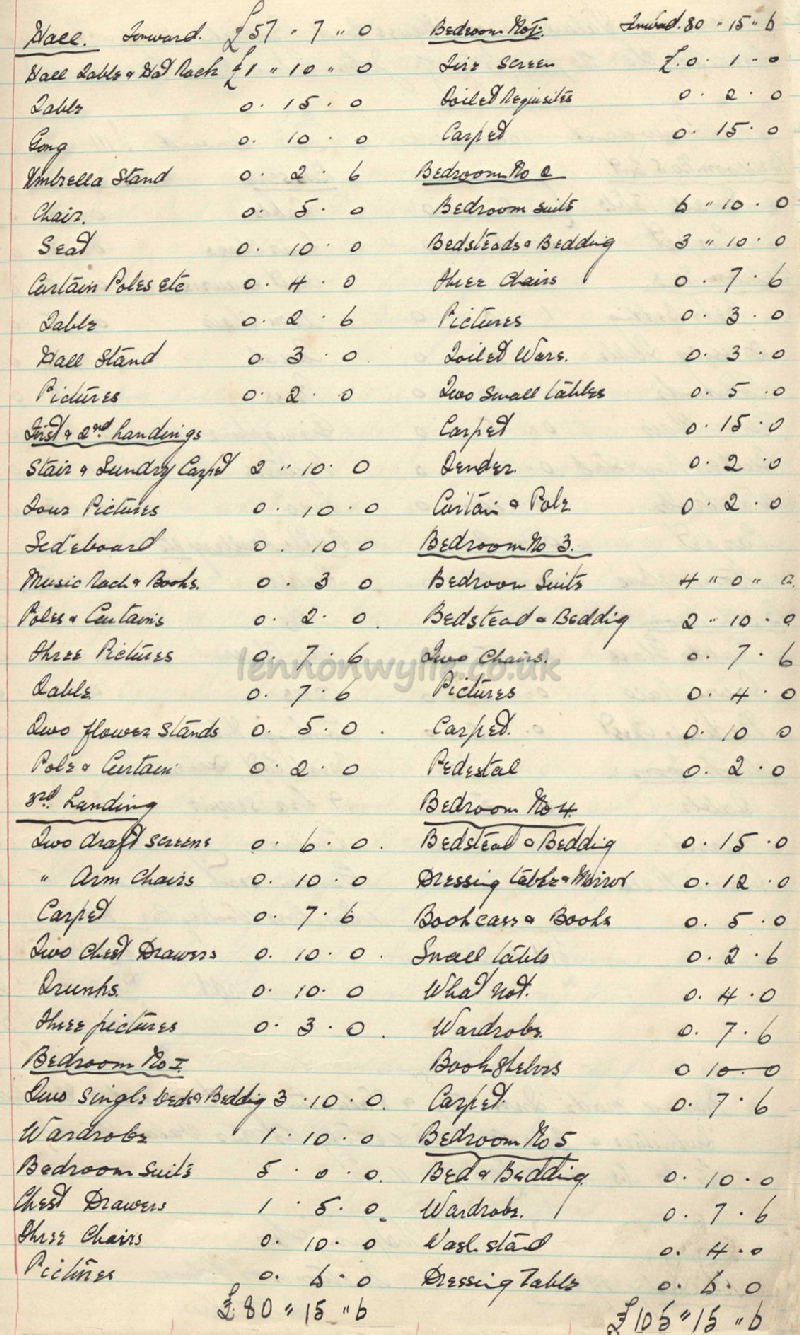 Hall. Forward. £57 " 7 " 0
Hall Table & Hat Rack £1 " 10 " 0
Table 0 . 15 . 0
Gong 0 . 10 . 0
Umbrella Stand 0 . 2 . 6
Chair. 0 . 5 . 0
Seat 0 . 10 . 0
Curtain Poles etc 0 . 4 . 0
Table 0 . 2 . 6
Hall Stand 0 . 3 . 0
Pictures 0 . 2 . 0
First & 2nd Landings
Stair & Sundry Carpet 2 " 10 . 0
Four Pictures 0 . 10 . 0
Sideboard 0 . 10 0
Music Rack & Books. 0 . 3 0
Poles & Curtains 0 . 2 . 0 .
Three Pictures 0 . 7 . 6
Table. 0 . 7 . 6
Two flower stands 0 . 5 . 0 .
Pole & Curtain 0 . 2 . 0
3rd Landing
Two draft screens 0 . 6 . 0 .
" Arm Chairs 0 . 10 . 0
Carpet 0 . 7 . 6
Two Chest Drawers 0 . 10 . 0 .
Trunks. 0 . 10 . 0
Three pictures 0 . 3 . 0 .
Bedroom No I
Two Single beds & Beddig 3 . 10 . 0 .
Wardrobe 1 . 10 . 0
Bedroom Suite 5 . 0 . 0 .
Chest Drawers 1 . 5 . 0 .
Three Chairs 0 . 10 . 0
Pictures 0 . 6 . 0
£80 " 15 " 6
Bedroom No I. Forwd. 80 " 15 " 6
Fire Screen £. 0 . 1 . 0
Toilet Requisites 0 . 2 . 0
Carpet 0 . 15 . 0
Bedroom No 2
Bedroom Suite 6 " 10 . 0
Bedsteads & Bedding 3 " 10 . 0
Three Chairs 0 . 7 . 6
Pictures 0 . 3 . 0
Toilet Ware. 0 . 3 . 0
Two Small tables 0 . 5 . 0
Carpet 0 . 15 . 0
Fender. 0 . 2 . 0
Curtain & Pole 0 . 2 . 0
Bedroom No 3.
Bedroom Suite 4 " 0 " 0
Bedstead & Beddig 2 " 10 . 0
Two Chairs. 0 . 7 . 6
Pictures 0 . 4 . 0
Carpet. 0 . 10 0
Pedestal 0 . 2 . 0
Bedroom No 4
Bedstead & Bedding 0 . 15 . 0
Dressing table & Mirror 0 . 12 . 0
Bookcase & Books 0 . 5 . 0
Small table 0 . 2 . 6
What Not. 0 . 4 . 0
Wardrobe 0 . 7 . 6
Book Shelves 0 10 . 0
Carpet. 0 . 7 . 6
Bedroom No 5
Bed & Bedding 0 . 10 . 0
Wardrobe. 0 . 7 . 6
Wash stad 0 . 4 . 0
Dressing Table 0 . 6 . 0
£105 " 15 " 6
lennonwylie.co.uk